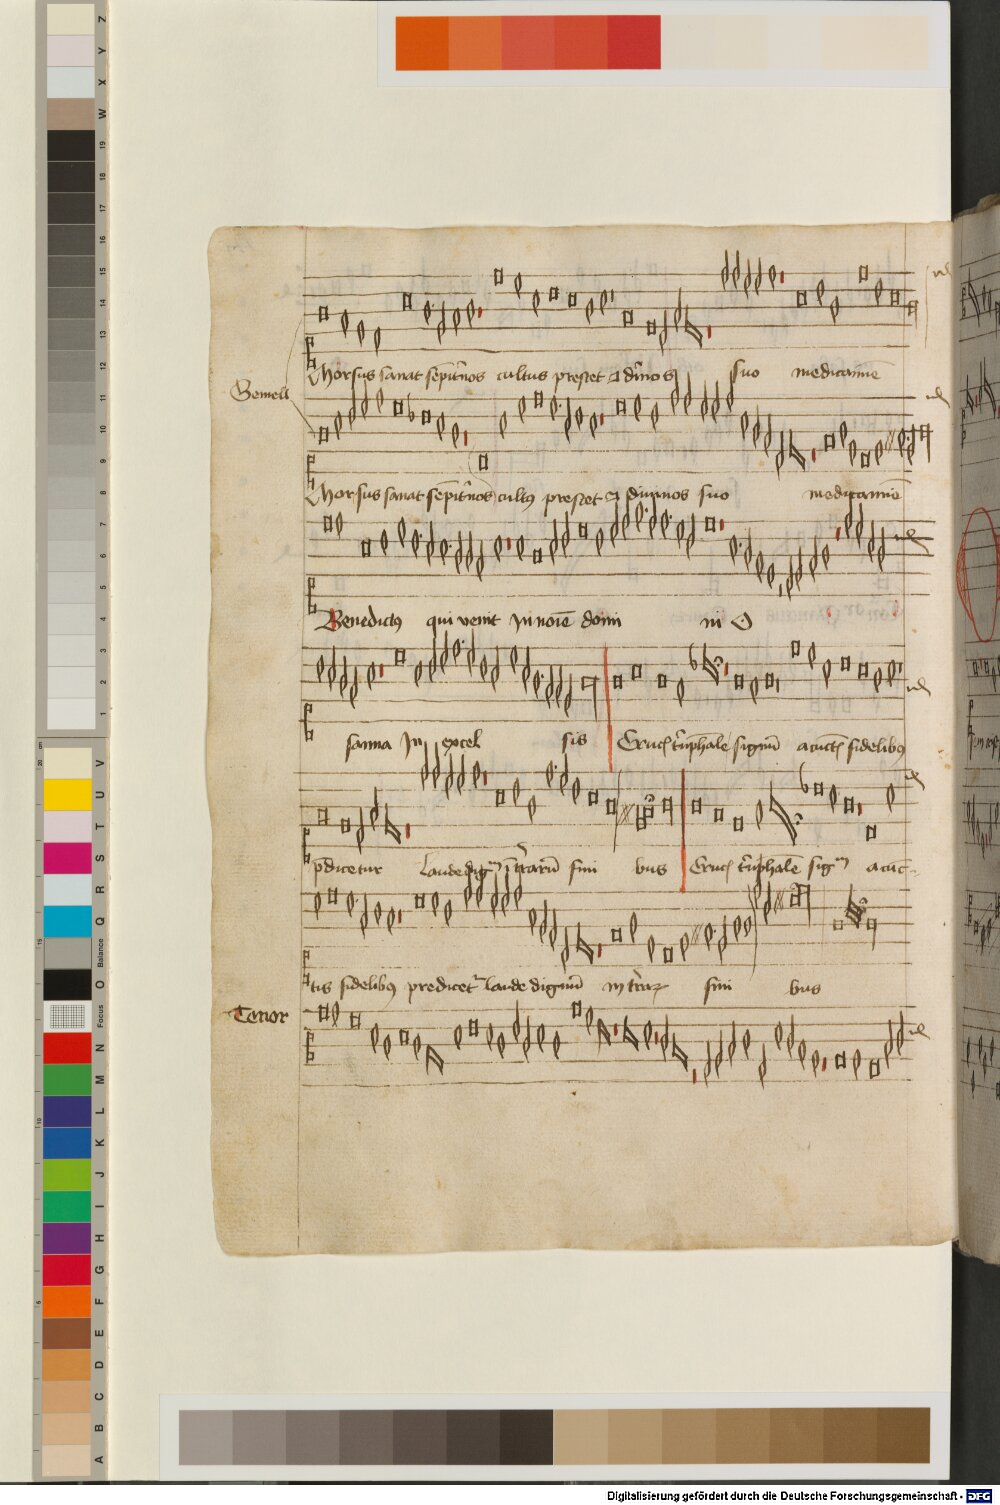 Gemell
Morsus sanat sēpit̄nos cultus prestet ⁊ diīnos suo medicamīe
Morsus sanat sēpit̄nos cultꝰ prestet ⁊ diuinos suo medicamīe
Benedictꝰ qui venit In noīe domī ni O
sanna In excel sis Crucꝭ t̄ūphale signū acunctꝭ fidelibꝰ
p̄dicetur laude dig ī t̄rarū fini bus Crucꝭ t̄ūphale sig acūc-
tis fidelibꝰ predicet᷑ laude dignū in t̄raꝝ fini bus
Tenor
Digitalisierung gefördert durch die Deutsche Forschungsgemeinschaft - DFG